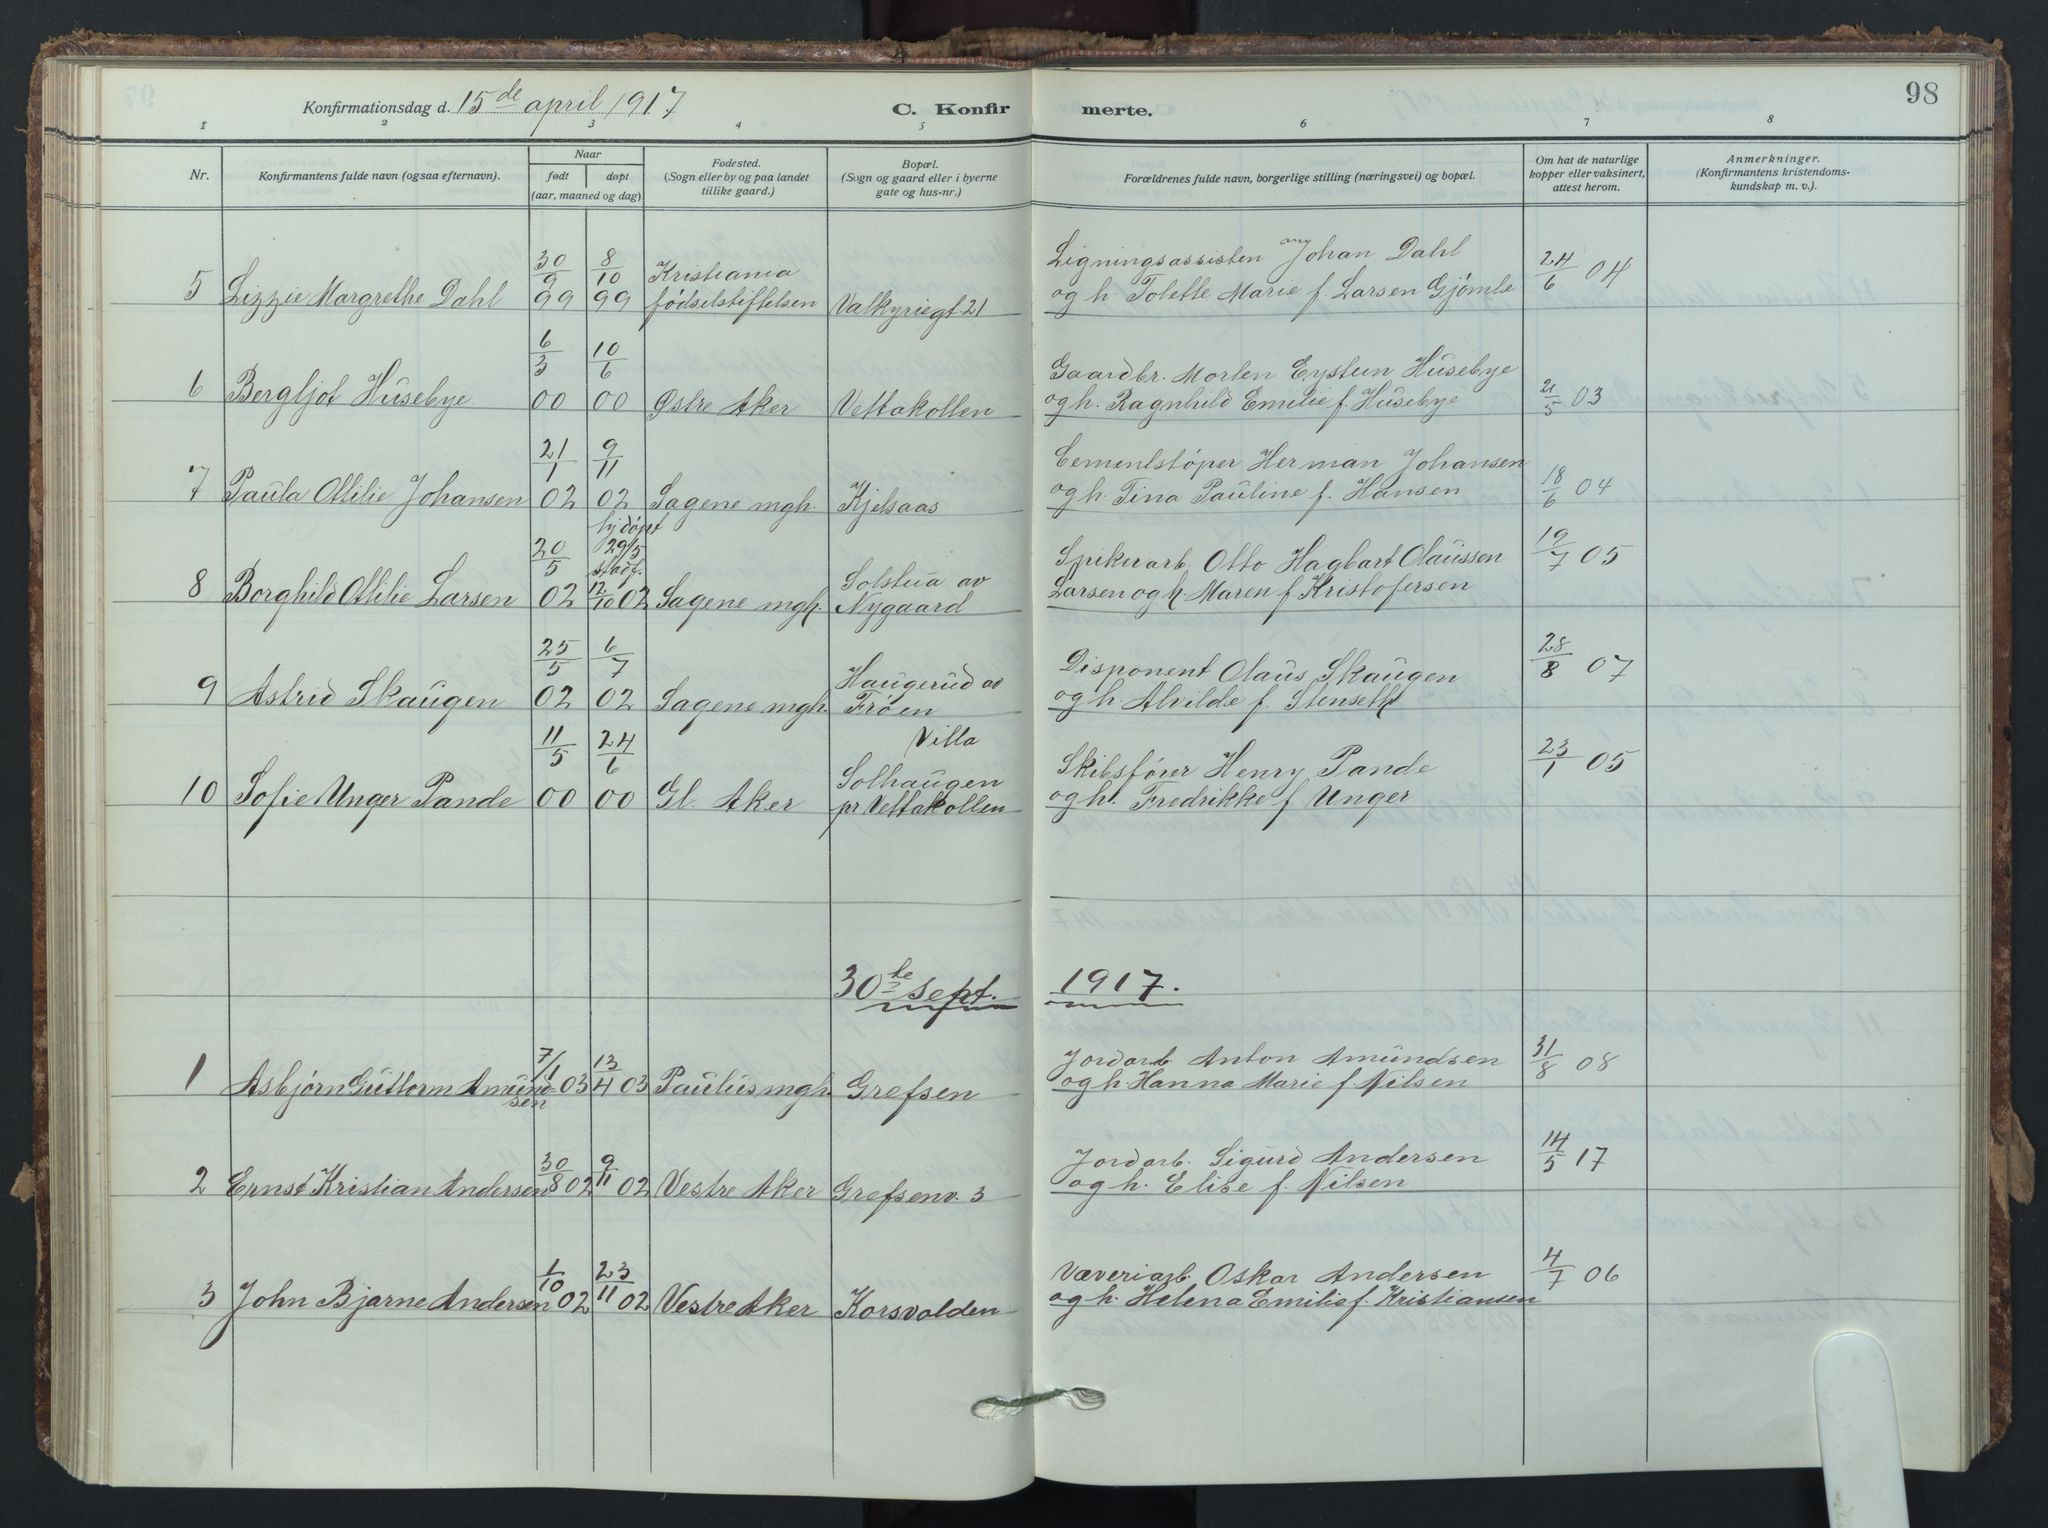 98
Konfirmationsdag d. 15de april 1917
C. Konfir merte.
1 2 3 4 5 6 7 8
Nr.
Konfirmantens fulde navn (ogsaa efternavn).
Naar
født døpt
(aar, maaned og dag)
Fødested.
(Sogn eller by og paa landet
tillike gaard.)
Bopæl.
(Sogn og gaard eller i byerne
gate og hus-nr.)
Forældrenes fulde navn, borgerlige stilling (næringsvei) og bopæl.
Om hat de naturlige
kopper eller vaksinert,
attest herom.
Anmerkninger.
(Konfirmantens kristendoms-
kundskap m. v.).
5 Lizzie Margrethe Dahl 30/9 99 8/10 99 Kristiania
fødselstiftelsen Valkyriegt 21
Ligningsassisten Johan Dahl
og h. Tolette Marie f. Larsen Gjømle 24/6 04
6 Bergljot Husebye 6/3 00 10/6 00 Østre Aker Vettakollen
Gaardbr. Morten Eystein Husebye
og h. Ragnhild Emilie f. Husebye 21/5 03
7 Paula Otilie Johansen 21/1 02 9/11 02 Sagene mgh. Kjelsaas
Cementstøper Herman Johansen
og h. Tina Pauline f. Hansen 18/6 04
8 Borghild Otilie Larsen 20/5 02 hjdøpt
29/5
stadf.
12/10 02 Sagene mgh. Solstua av
Nygaard
Spikerarb. Otto Hagbart Claussen
Larsen og h. Maren f. Kristofersen 19/7 05
9 Astrid Skaugen 25/5 02 6/7 02 Sagene mgh. Haugerud av
Frøen
Disponent Claus Skaugen
og h. Alvilde f. Stenseth 28/8 07
10 Sofie Unger Pande 11/5 00 24/6 00 Gl. Aker Villa
Solhaugen
pr Vettakollen
Skibsfører Henry Pande
og h. Fredrikke f Unger 23/1 05
30te sept. 1917.
1 Asbjørn Guttorm Amund-
sen 7/1 03 13/4 03 Paulus mgh. Grefsen
Jordarb. Anton Amundsen
og h. Hanna Marie f. Nilsen 31/8 08
2 Ernst Kristian Andersen 30/8 02 9/11 02 Vestre Aker Grefsenv. 3
Jordarb. Sigurd Andersen
og h. Elise f. Nilsen 14/5 17
3 John Bjarne Andersen 1/10 02 23/11 02 Vestre Aker Korsvolden
Væveriarb. Oskar Andersen
og h. Helena Emilie f. Kristiansen 4/7 06